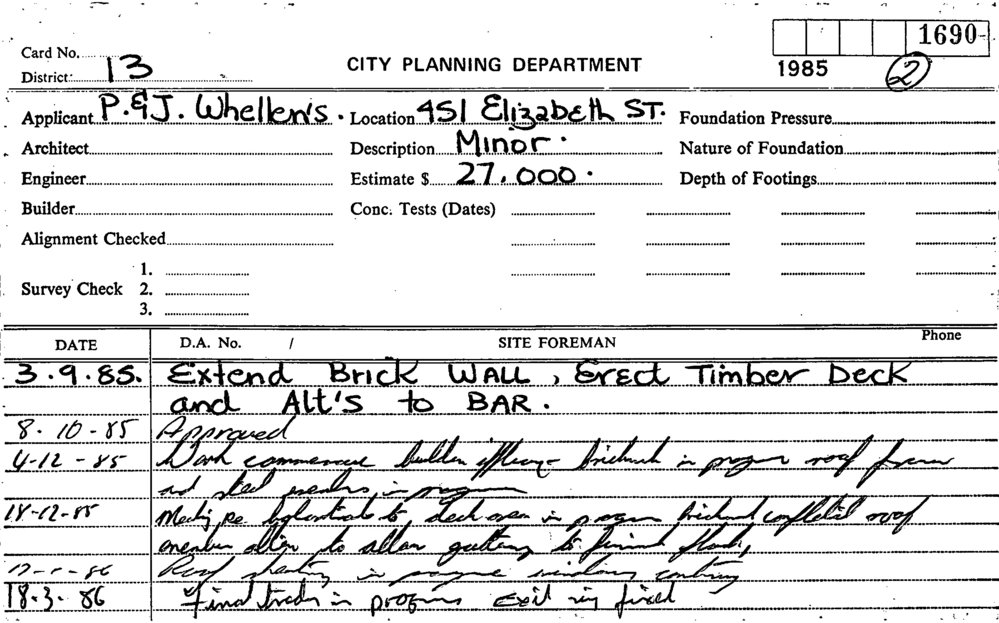 1690
Card No.
District: 13
CITY PLANNING DEPARTMENT
1985
2
Applicant P. & J. Whellens. Location 451 Elizabeth ST. Foundation Pressure
Architect Description Minor. Nature of Foundation
Engineer Estimate $ 27,000. Depth of Footings
Builder Conc. Tests (Dates)
Alignment Checked
1.
Survey Check 2.
3.
DATE D.A. No. / SITE FOREMAN Phone
3.9.85. Extend Brick WALL, Erect Timber Deck
and Alt's to BAR.
8-10-85 Approved
4-12-85 Work commenced builder brickwork in progress roof frame
and steel members in progress
18-12-85 Meeting re to deck area in progress brickwork completed roof
member to allow guttering to finish
86 Roof sheeting in progress windows
18.3.86 Final trades in progress Exit fixed